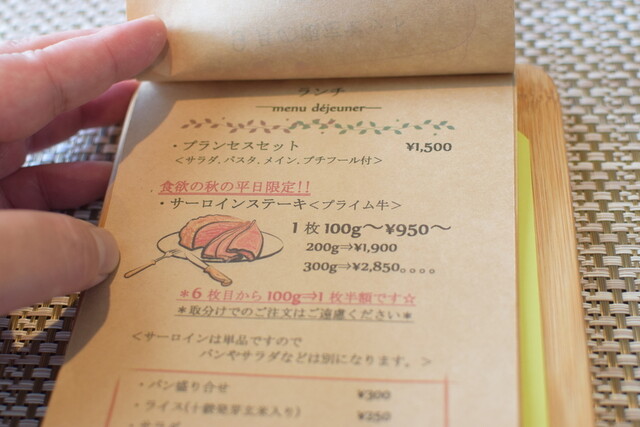 ランチ
menu déjeuner
・プランセスセット ¥1,500
<サラダ、パスタ、メイン、プチフール付>
食欲の秋の平日限定!!
・サーロインステーキ<プライム牛>
1枚100g〜¥950〜
200g⇒¥1,900
300g⇒¥2,850。。。。
*6枚目から100g⇒1枚半額です☆
*取分けでのご注文はご遠慮ください*
<サーロインは単品ですので
パンやサラダなどは別になります。>
・パン盛り合せ ¥300
・ライス(十穀発芽玄米入り) ¥250